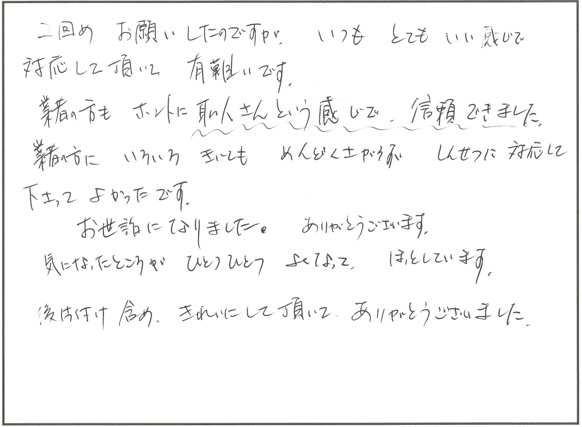 二回め お願いしたのですが、 いつも とても いい感じで
対応して頂いて 有難いです。
業者の方も ホントに 職人さんという感じで、信頼できました。
業者の方に いろいろ きいても めんどくさがらず しんせつに 対応して
下さって よかったです。
お世話になりました。 ありがとうございます。
気になったところが ひとつひとつ よくなって、 ほっとしています。
後片付け 含め、きれいにして頂いて、ありがとうございました。